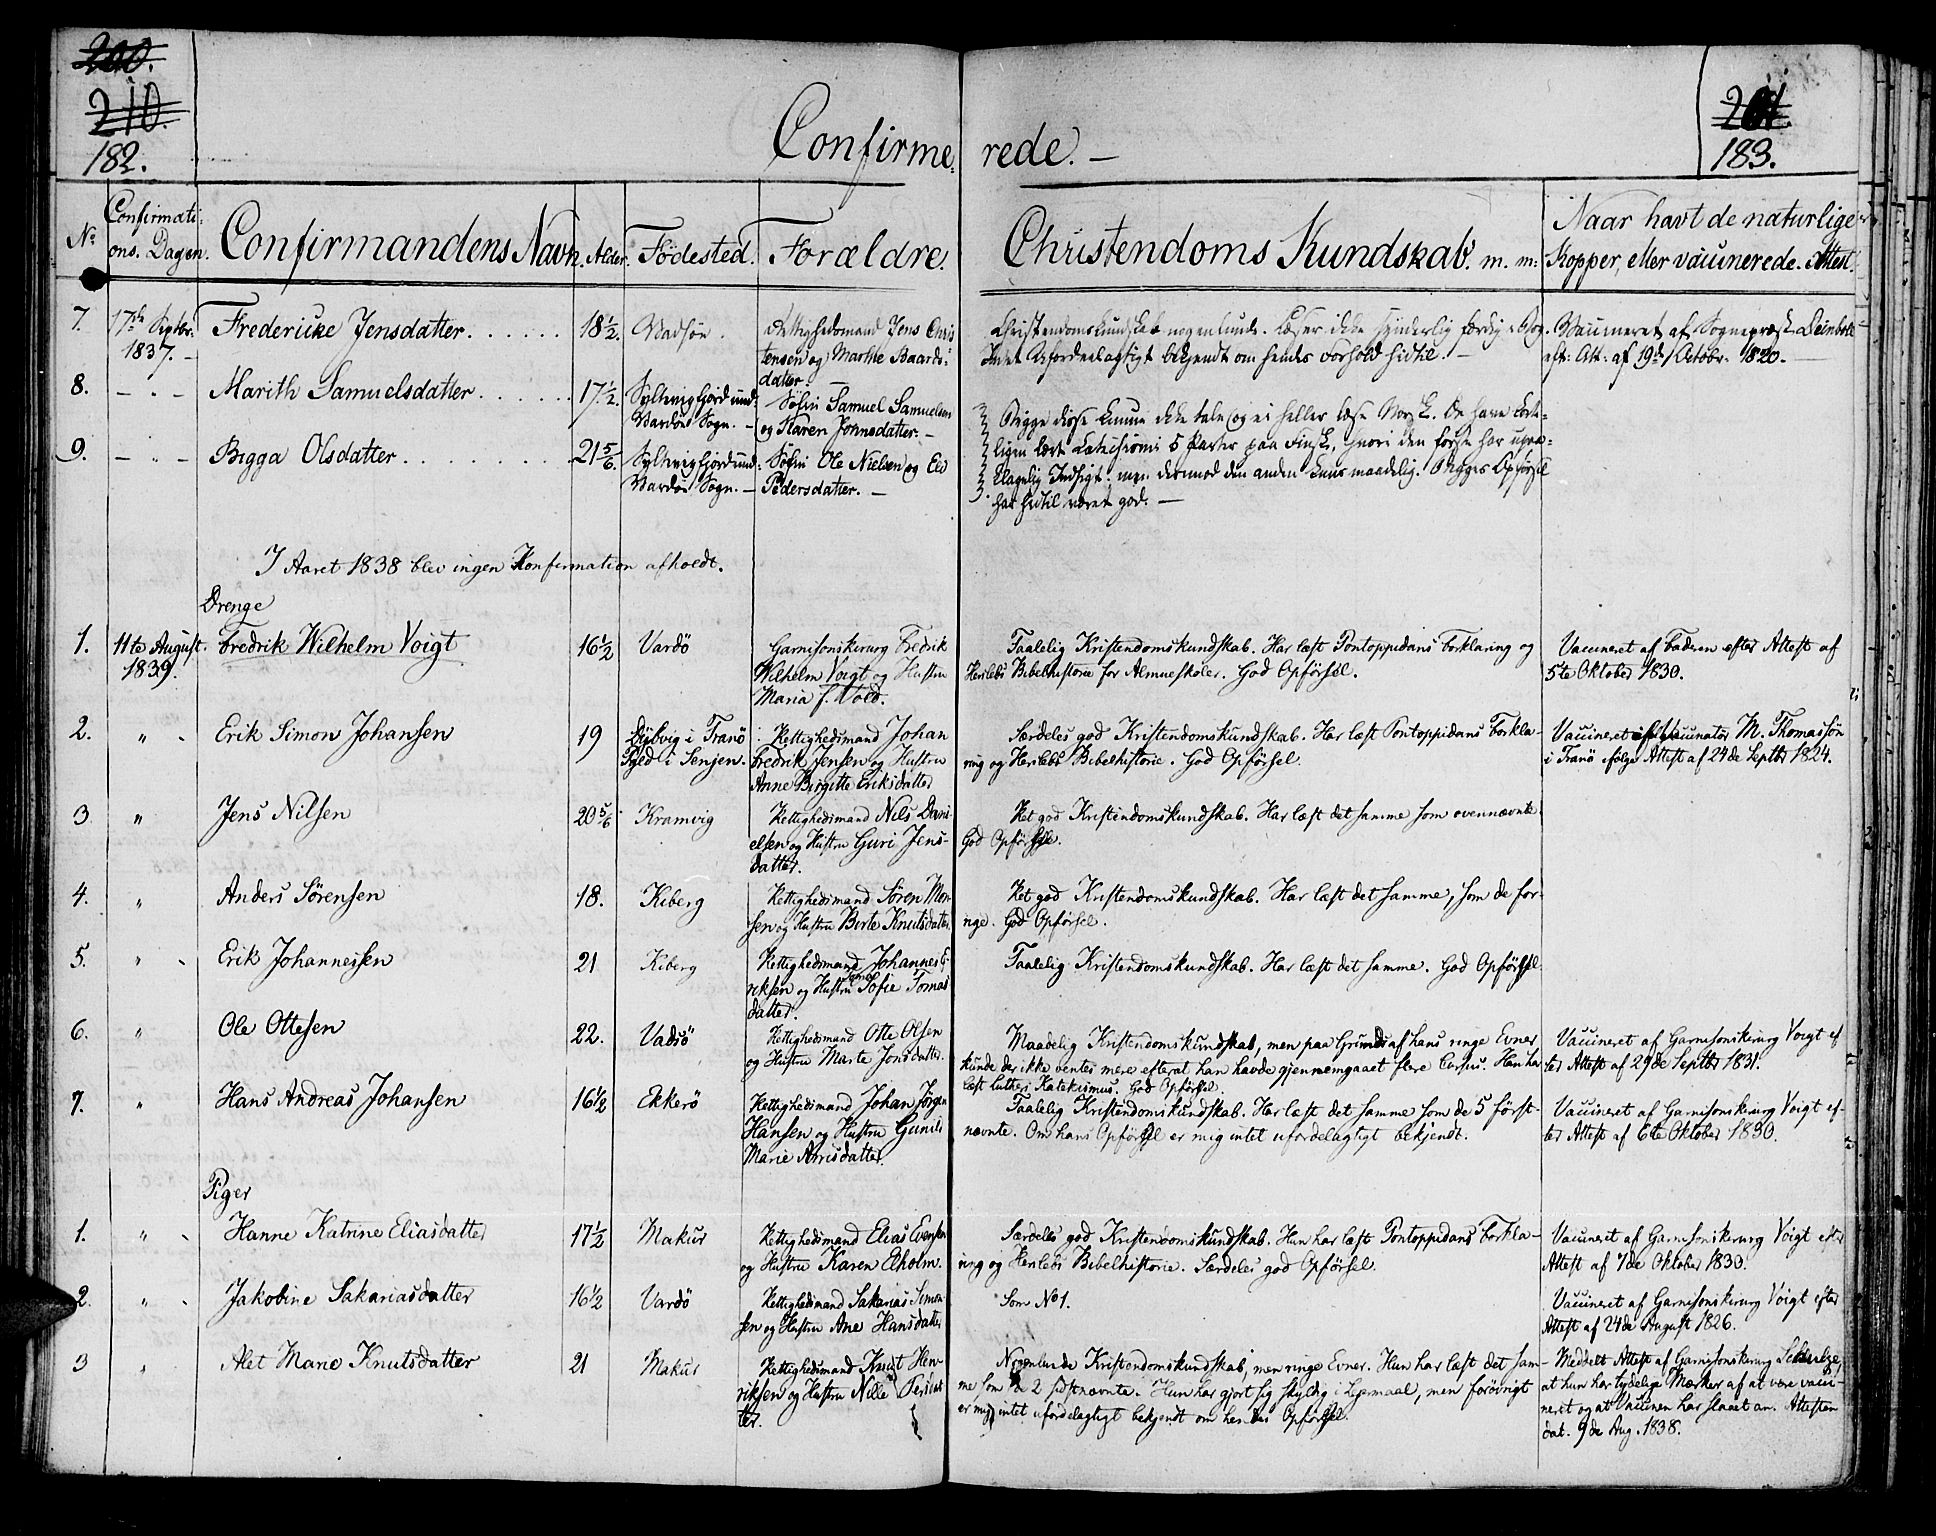 200.
210.
182.
Confirme=
rede. —
201.
183.
No
Confirmati=
ons. Dagen.
Confirmandens Navn.
Alder.
Fødested.
Forældre.
Christendoms Kundskab. m. m:
Naar havt de naturlige
Kopper, eller vaccinerede. Attest.
7. 17de Septbr. Fredericke Jensdatter. 18½. Vadsöe. Rettighedsmand Jens Chris
1837. — tensen og Marthe Baards=
datter.
Christendomskundskab nogenlunde. Læser ikke synderlig færdig i Bog.
Intet ufordeelagtigt bekjendt om hendes Forhold hidtil. —
Vaccineret af Sognepræst Deinboll
eft: Att: af 19de Octobr. 1820. —
8. — „ — Marith Samuelsdatter 17½. Syltevigfjord und.
Vardöe Sogn. —
Søfin Samuel Samuelsen
og Karen Johnsdatter. —
9. — „ — Bigga Olsdatter 21 5/6. Syltevigfjord und.
Vardöe Sogn. —
Søfin Ole Nielsen og
Pedersdatter. —
Begge disse kunne ikke tale og ei heller læse Norsk. De have
ligen lært Catechismi 5 Parter paa Finsk, hvori den første har upaa=
klagelig Indsigt; men derimod den anden kuns maadelig. Begges Opførsel
har hidtil været god. —
I Aaret 1838 blev ingen Konfirmation afholdt.
Drenge
1. 11te August. Fredrik Wilhelm Voigt 16½ Vardö Garnisonskirurg Fredrik
1839. Wilhelm Voigt og Hustru
Maria f. Wold.
Taalelig Kristendomskundskab. Har læst Pontoppidans Forklaring og
Herslebs Bibelhistorie for Almueskoler. God Opførsel.
Vaccineret af Faderen efter Attest af
5te Oktober 1830.
2. „ Erik Simon Johansen 19 Dybvig i Tranö
Pgld i Senjen.
Rettighedsmand Johan
Fredrik Jensen og Hustru
Anne Birgitte Eriksdatter
Særdeles god Kristendomskundskab. Har læst Pontoppidans Forkla-
ring og Herslebs Bibelhistorie. God Opførsel.
Vaccineret af Vaccinatør M. Thomassön
i Tranö ifølge Attest af 24de Septbr 1824.
3 „ Jens Nilsen 20 5/6 Kramvig Rettighedsmand Nils Dani-
elsen og Hustru Guri Jens-
datter.
Ret god Kristendomskundskab. Har læst det samme som ovennævnte.
God Opførsel.
4. „ Anders Sörensen 18. Kiberg Rettighedsmand Sören Mon-
sen og Hustru Berte Knutsdatter.
Ret god Kristendomskundskab. Har læst det samme, som de for-
rige. God Opførsel.
5. „ Erik Johannessen 21 Kiberg Rettighedsmand Johannes E-
riksen og Hustru Sofie Tomas
datter.
Taalelig Kristendomskundskab. Har læst det samme. God Opførsel.
6. „ Ole Ottesen 22. Vadsö Rettighedsmand Otte Olsen
og Hustru Marte Jonsdatter.
Maadelig Kristendomskundskab, men paa Grund af hans ringe Evner
kunde der ikke ventes mere efterat han havde gjennemgaaet flere Cursus. Han har
læst Luthers Katekismus. God Opførsel.
Vaccineret af Garnisonskirurg Voigt ef
ter Attest af 29de Septbr 1831.
7. „ Hans Andreas Johansen 16½ Ekkerö Rettighedsmand Johan Jörgen
Hansen og Hustru Gunild
Marie Arnsdatter.
Taalelig Kristendomskundskab. Har læst det samme som de 5 først-
nævnte. Om hans Opførsel er mig intet ufordelagtigt bekjendt.
Vaccineret af Garnisonskirurg Voigt ef-
ter Attest af 6te Oktober 1830.
Piger
1. „ Hanne Katrine Eliasdatter 17½ Makur Rettighedsmand Elias Evensen
og Hustru Karen Elholm.
Særdeles god Kristendomskundskab. Hun har læst Pontoppidans Forkla-
ring og Herslebs Bibelhistorie. Særdeles god Opførsel.
Vaccineret af Garnisonskirurg Voigt efter
Attest af 7de Oktober 1830.
2. „ Jakobine Sakariasdatter 16½ Vardö Rettighedsmand Sakarias Simon-
sen og Hustru Ane Hansdatter
Som No 1.
Vaccineret af Garnisonskirurg Voigt efter
Attest af 24de August 1826.
3 „ Alet Marie Knutsdatter 21 Makur Rettighedsmand Knut Hen-
riksen og Hustru Nille
ter.
Nogenlunde Kristendomskundskab, men ringe Evner. Hun har læst det sam-
me som de 2 sidstnævnte. Hun har gjort sig skyldig i Lejermaal, men forövrigt
er mig intet ufordelagtigt bekjendt om hendes Opførsel.
Meddelt Attest af Garnisonskirurg Schulze,
at hun har tydelige Mærker af at være vacci-
neret og at Vaccinen har slaaet an. Attesten
dat. 9de Aug. 1838.